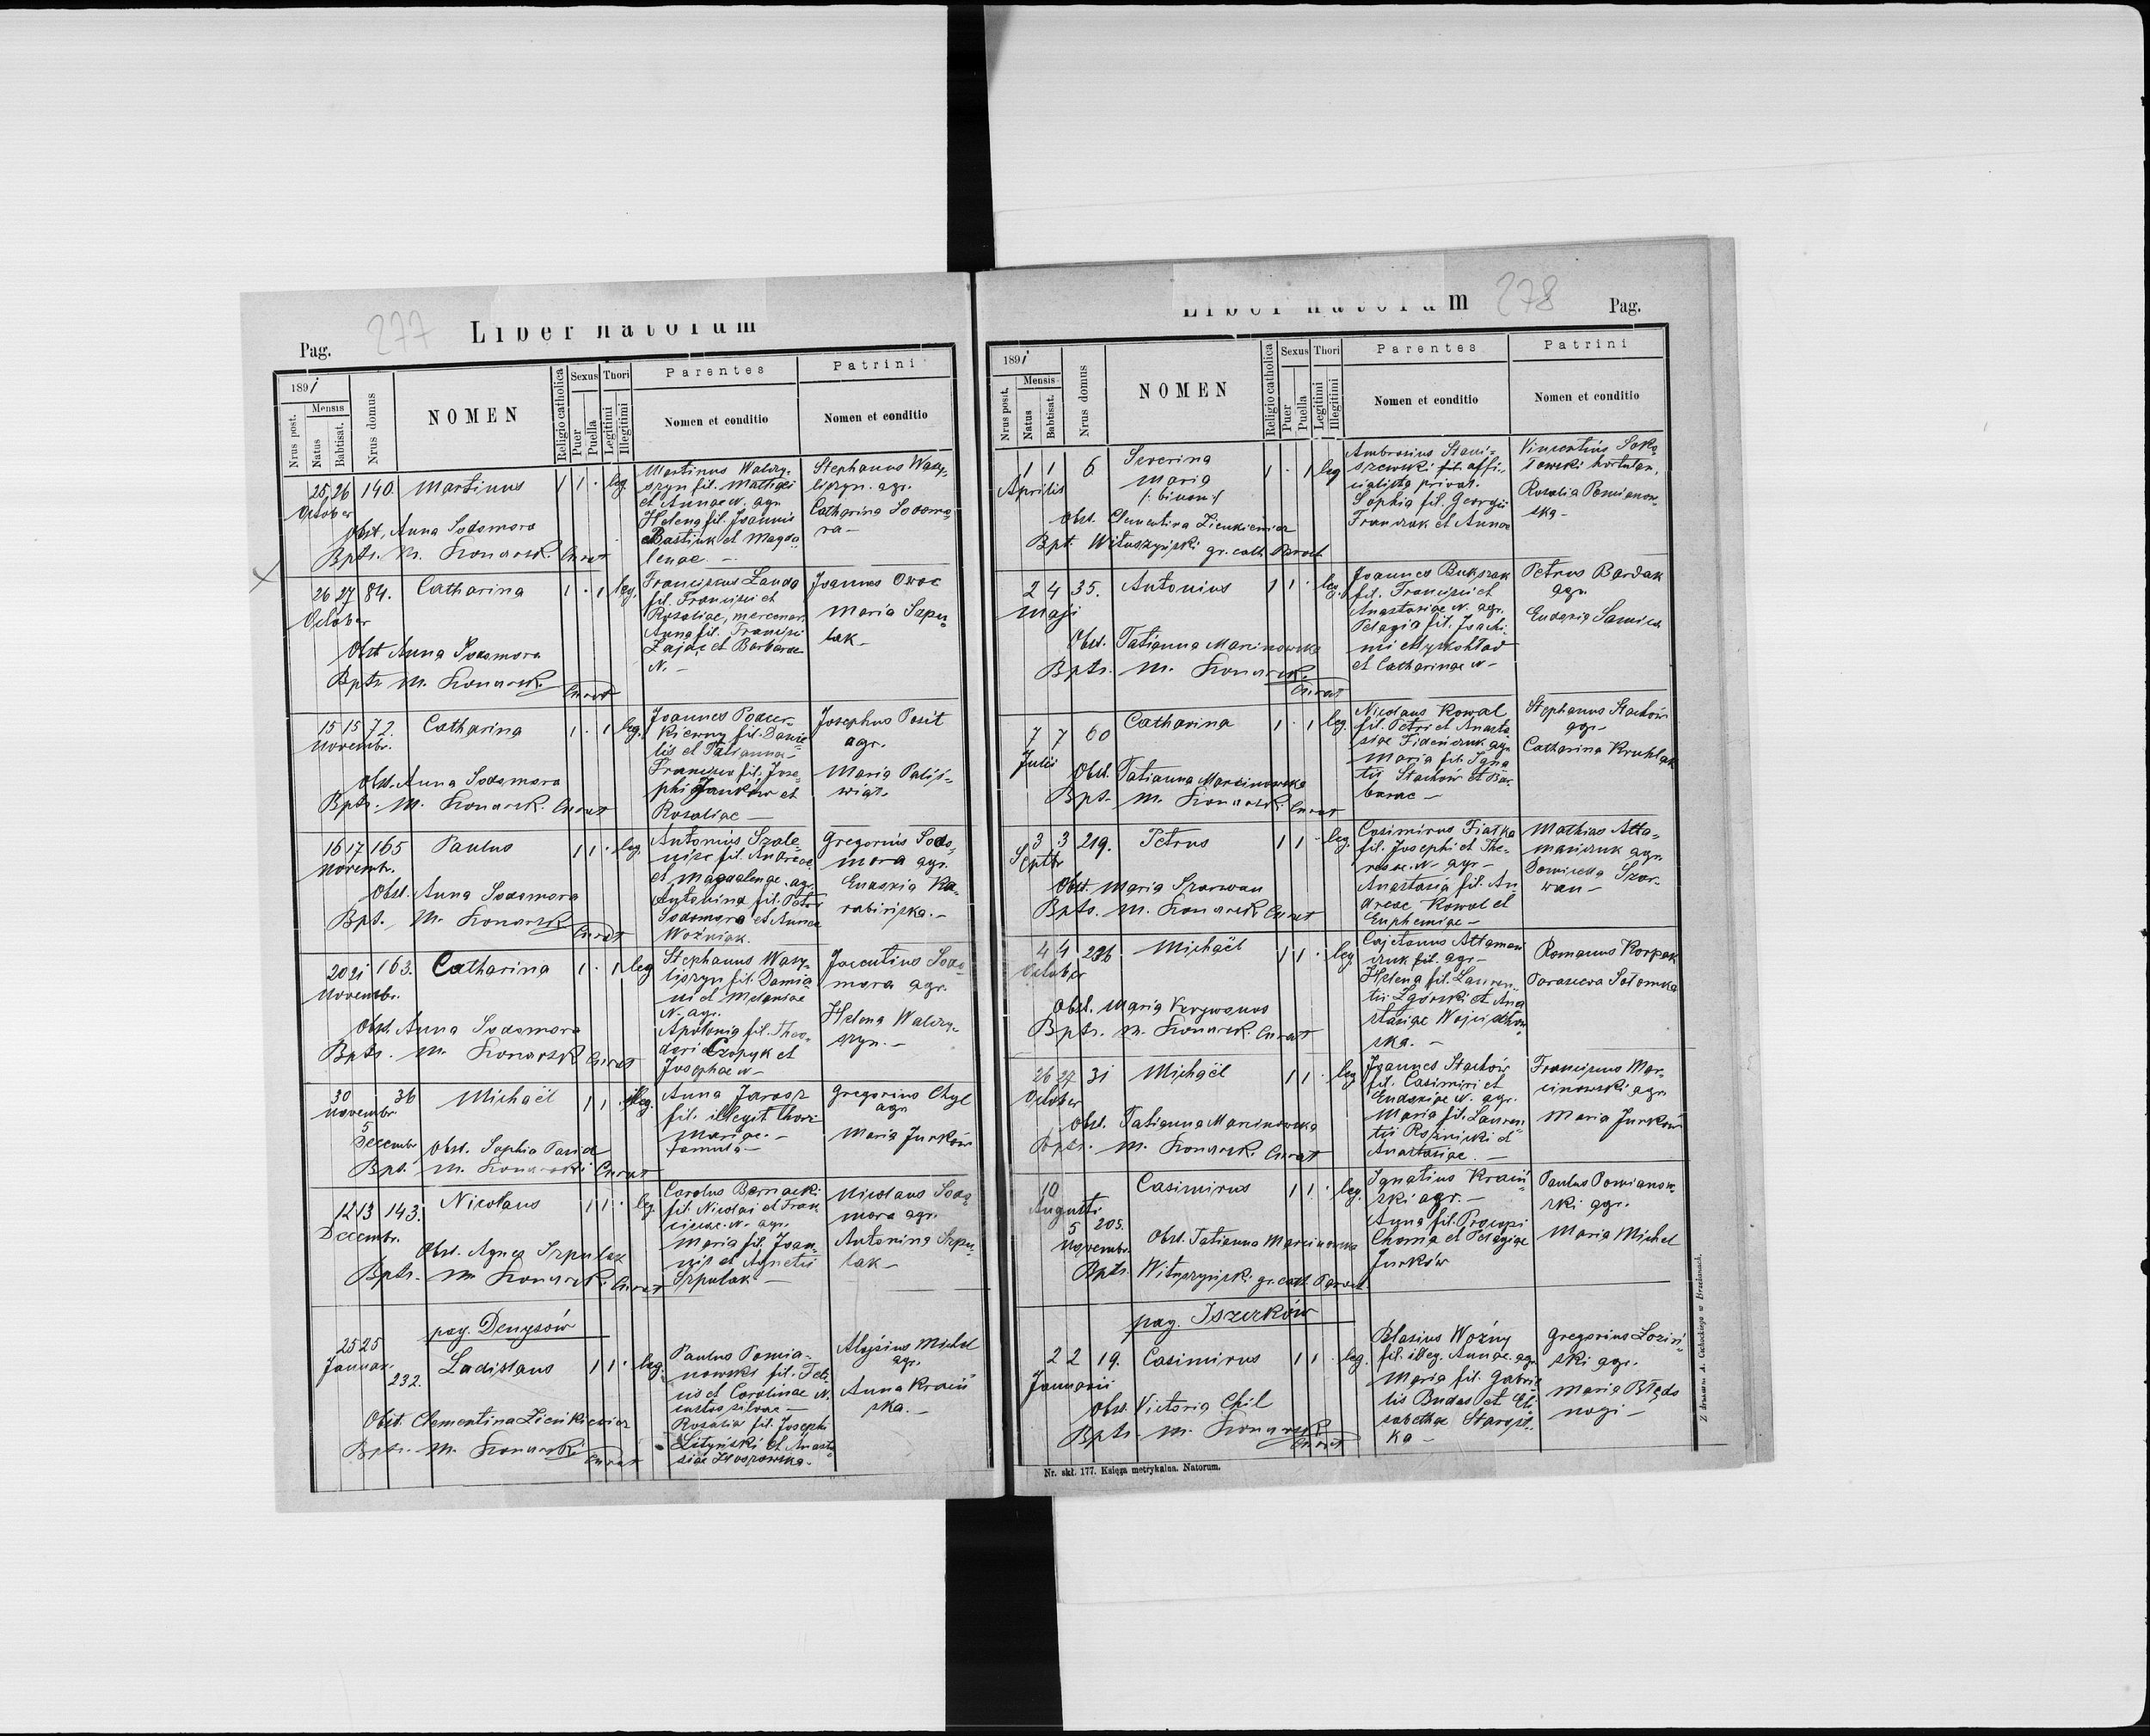 277
Liber natorum
Pag.
1891
Nrus post.
Mensis
Natus
Babtisat.
Nrus domus
NOMEN
Religio catholica
Sexus
Puer
Puella
Thori
Legitimi
Illegitimi
Parentes
Nomen et conditio
Patrini
Nomen et conditio
25 26 140. Martinus 1 1 · leg.
October
Obst. Anna Sodomora
Bptr. M. Konarski Curat
Martinus Walczy-
szyn fil. Mathaei
et Annae N. agr.
Helena fil. Joannis
Bastiuk et Magda-
lenae —
Stephanus Wasy-
liszyn agr.
Catharina Sodomo-
ra —
26 27 84. Catharina 1 · 1 leg.
October
Obst Anna Sodomora
Bptr M. Konarski
Curat
Franciscus Landa
fil. Francisci et
Rosaliae, mercenar.
Anna fil. Francisci
Zając et Barbarae
N. —
Joannes Owoc
Maria Szpu-
lak —
15 15 72. Catharina 1 · 1 leg.
Novembr.
Obst. Anna Sodomora
Bptr. M. Konarski Curat
Joannes Podcer-
kierny fil. Danie-
lis et Tatianna
Francisca fil. Jose-
phi Janków et
Rosaliae —
Josephus Posit
agr.
Maria Palij-
wiat.
16 17 165 Paulus 1 1 · leg.
Novembr.
Obst. Anna Sodomora
Bpt. M. Konarski
Curat
Antonius Szale-
wicz fil. Andreae
et Magdalenae agr.
Antonina fil. Petri
Sodomora et Annae
Woźniak.
Gregorius Sodo-
mora agr.
Eudoxia Ka-
rabińska. —
20 21 163. Catharina 1 · 1 leg
Novembr.
Obst. Anna Sodomora
Bptr. M. Konarski Curat
Stephanus Wasy-
liszyn fil. Damia-
ni et Melaniae
N. agr.
Apolonia fil. Theo-
dori Czopyk et
Josephae N —
Jacentius Sodo-
mora agr.
Helena Walczy-
szyn. —
30 36 Michaël 1 1 · illeg.
Novembr
5
Decembr Obst. Sophia Pasid
Bpt. M. Konarski Curat
Anna Jarosz
fil. illegit thori
Mariae. —
famula —
Gregorius Chyl
agr
Maria Jurków
12 13 143. Nicolaus 1 1 · leg.
Decembr.
Obst. Agnes Szpulak
Bptr. M. Konarski Curat
Carolus Bernacki
fil. Nicolai et Fran-
ciscae N. agr.
Maria fil. Joan-
nis et Agnetis
Szpulak —
Nicolaus Sodo-
mora agr.
Antonina Szpu-
lak —
pag. Denysów
25 25 Ladislaus 1 1 · leg.
Januar.
232.
Obst. Clementina Zienkiewicz
Bptr. M. Konarski
Curat
Paulus Pomia-
nowski fil. Feli-
cis et Carolinae N.
custos silvae —
Rosalia fil. Josephi
Lityński et Anasta-
siae
Alojsius Michel
agr.
Anna Kraiń-
ska. —
Liber natorum
278
Pag.
1891
Nrus posit.
Mensis
Natus
Babtisat.
Nrus domus
NOMEN
Religio catholica
Sexus
Puer
Puella
Thori
Legitimi
Illegitimi
Parentes
Nomen et conditio
Patrini
Nomen et conditio
1 1 6 Severina 1 · 1 leg
Aprilis Maria
/: binon :/
Obst. Clementina Zienkiewicz
Bpt. Wituszyński gr. cath. Paroch
Ambrosius Stani-
szewski offi-
cialista privat.
Sophia fil. Georgii
Franczak et Annae
Vincentius Soko-
łowski hortulan.
Rosalia Pomianow-
ska —
2 4 35. Antonius 1 1 · leg.
Maji
Obst. Tatianna Marcinowska
Bptr. M. Konarski
Curat
Joannes Bukszak
fil. Francisci et
Anastasiae N. agr.
Pelagia fil. Joachi-
mi
et Catharinae N —
Petrus Bardak
agr.
Eudoxia
7 7 60 Catharina 1 · 1 leg.
Julii
Obst. Tatianna Marcinowska
Bpt. M. Konarski Curat
Nicolaus Kowal
fil. Petri et Anasta-
siae Fideńczuk agr
Maria fil. Igna-
tii Stachów et Bar-
barae —
Stephanus Stachów
agr —
Catharina Kruhlak
3 3 219. Petrus 1 1 · leg.
Septbr
Obst. Maria Szarwan
Bptr. M. Konarski Curat
Casimirus Fiałka
fil. Josephi et The-
resae N. agr —
Anastasia fil. An-
dreae Kowal et
Euphemiae —
Mathias Atta-
mańczuk agr.
Dominica Szar-
wan —
4 4 226 Michaël 1 1 · leg.
October
Obst. Maria Krzywonos
Bptr. M. Konarski Curat
Cajetanus Attaman-
czuk fil. agr —
Helena fil. Lauren-
tii Zgórski et Ana-
stasiae Wojciechow-
ska. —
Romanus Korpak
Parascewa Sołomka
26 27 31 Michaël 1 1 · leg
October
Obst. Tatianna Marcinowska
Bptr. M. Konarski Curat
Joannes Stachów
fil. Casimiri et
Eudoxiae N. agr.
Maria fil. Lauren-
tii Rożnicki et
Anastasiae. —
Franciscus Mar-
cinowski agr
Maria Jurków
10 Casimirus 1 1 · leg.
Augusti
5 205.
Novembr. Obst. Tatianna Marcinowska
Bptr. Wituszyński gr. cath. Paroch
Ignatius Kraiń-
ski agr. —
Anna fil. Procopi
Choma et Pelagiae
Jurków
Paulus Pomianow-
ski agr.
Maria Michel
pag. Iszczków
2 2 19. Casimirus 1 1 · leg.
Januarii
Obst. Victoria Chil
Bptr. M. Konarski
Curat
Blasius Woźny
fil. illeg. Annae agr
Maria fil. Gabrie-
lis Budas et Eli-
sabethae
ka —
Gregorius Loziń-
ski agr.
Maria Błędo-
nogi —
Nr. skł. 177. Księga metrykalna. Natorum.
Z drukarni A. Cichockiego w Brzeżanach.